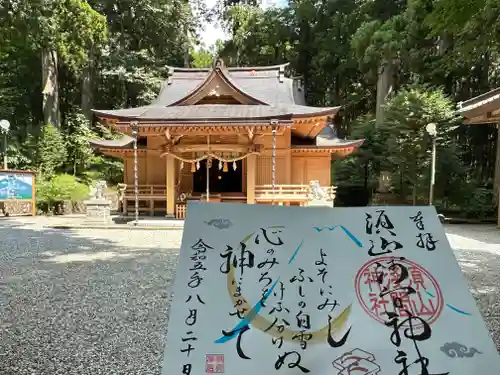 奉拝
須山浅間神社
よそにみし
ふしの白雪
けふわけぬ
心のみちを
神にまかせて
令和五年八月二十日